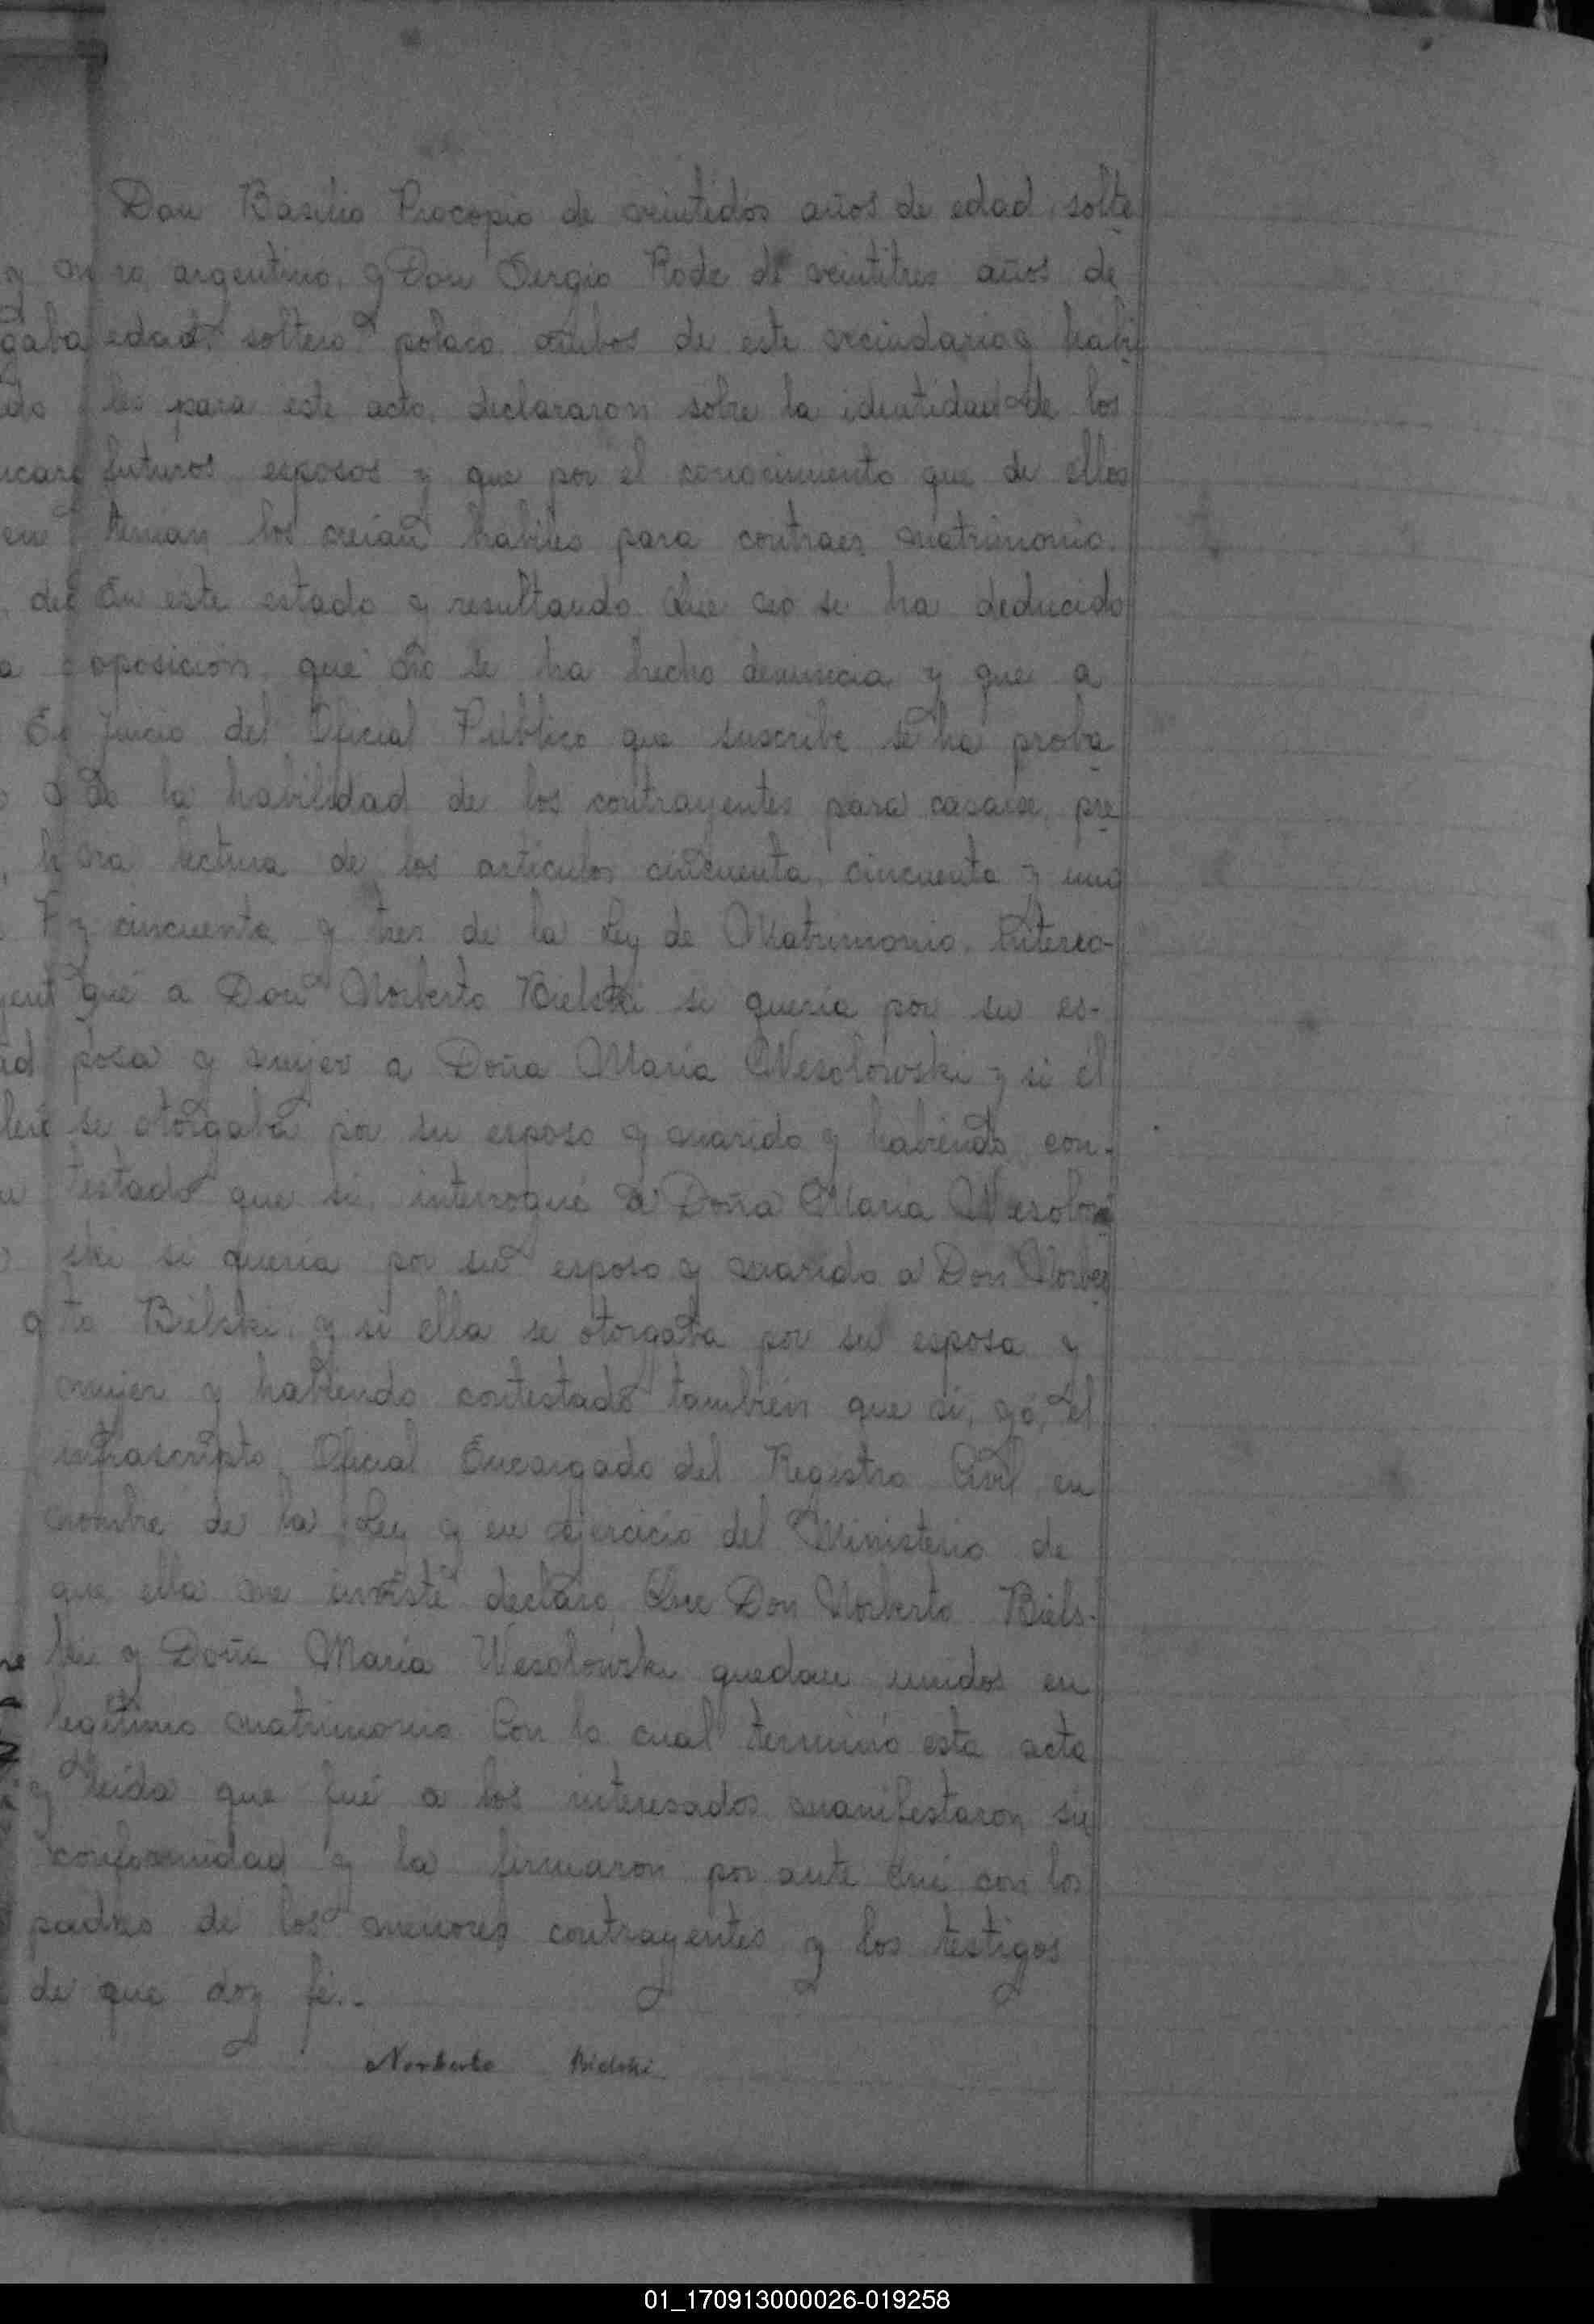 Don Basilio Procopio de veintidós años de edad, solte
ro, argentino, y Don Sergio Rode de veintitres años de
edad, soltero, polaco, ambos de este vecindario y habi
les para este acto, declararon sobre la identidad de los
futuros esposos y que por el conocimiento que de ellos
tenian los creían habiles para contraer matrimonio.
En este estado y resultando Que no se ha deducido
oposición, que no se ha hecho denuncia y que a
juicio del Oficial Público que suscribe se ha proba
do la habilidad de los contrayentes para casarse, pre
via lectura de los artículos cincuenta, cincuenta y uno
y cincuenta y tres de la Ley de Matrimonio, Interro-
gué a Don Norberto Bielski si quería por su es-
posa y mujer a Doña María Wesolowski y si él
se otorgaba por su esposo y marido y habiendo con-
testado que sí, interrogué a Doña María Wesolow
ski si quería por su esposo y marido a Don Norber
to Bielski y si ella se otorgaba por su esposa y
mujer y habiendo contestado también que sí, yó, el
infrascripto Oficial Encargado del Registro Civil en
nombre de la Ley y en ejercicio del Ministerio de
que ella me inviste declaro Que Don Norberto Biels-
ki y Doña María Wesolowski quedan unidos en
legítimo matrimonio Con lo cual terminó esta acta
y leída que fué a los interesados manifestaron su
conformidad y la firmaron por ante mí con los
padres de los menores contrayentes y los testigos
de que doy fé..
Norberto Bielski
01_170913000026-019258